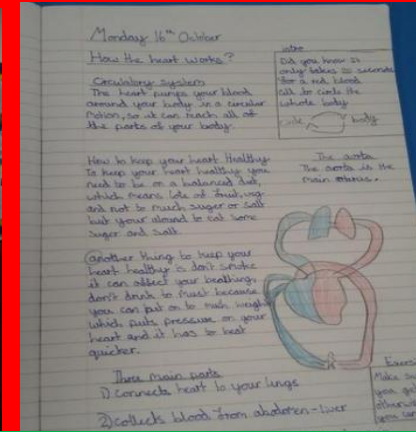 Monday 16th October
How the heart works?
Circulatory system
The heart pumps your blood
around your body in a circular
motion, so it can reach all of
the parts of your body.
intro
Did you know it
only takes 20 seconds
for a red blood
cell to circle the
whole body
circle
body
How to keep your heart Healthy
To keep your heart healthy you
need to be on a balanced diet,
which means lots of fruit, veg
and not to much sugar or salt
but your alound to eat some
sugar and salt.
The aorta
The aorta is the
main
another thing to keep your
heart healthy is don't smoke
it can affect your
don't drink to much because
you can put on to much weight
which puts pressure on your
heart and it has to beat
quicker.
Three main parts
1) connects heart to your lungs
2) collects blood from abdomen - liver
Exercise
Make su
you ge
otherwi
you can